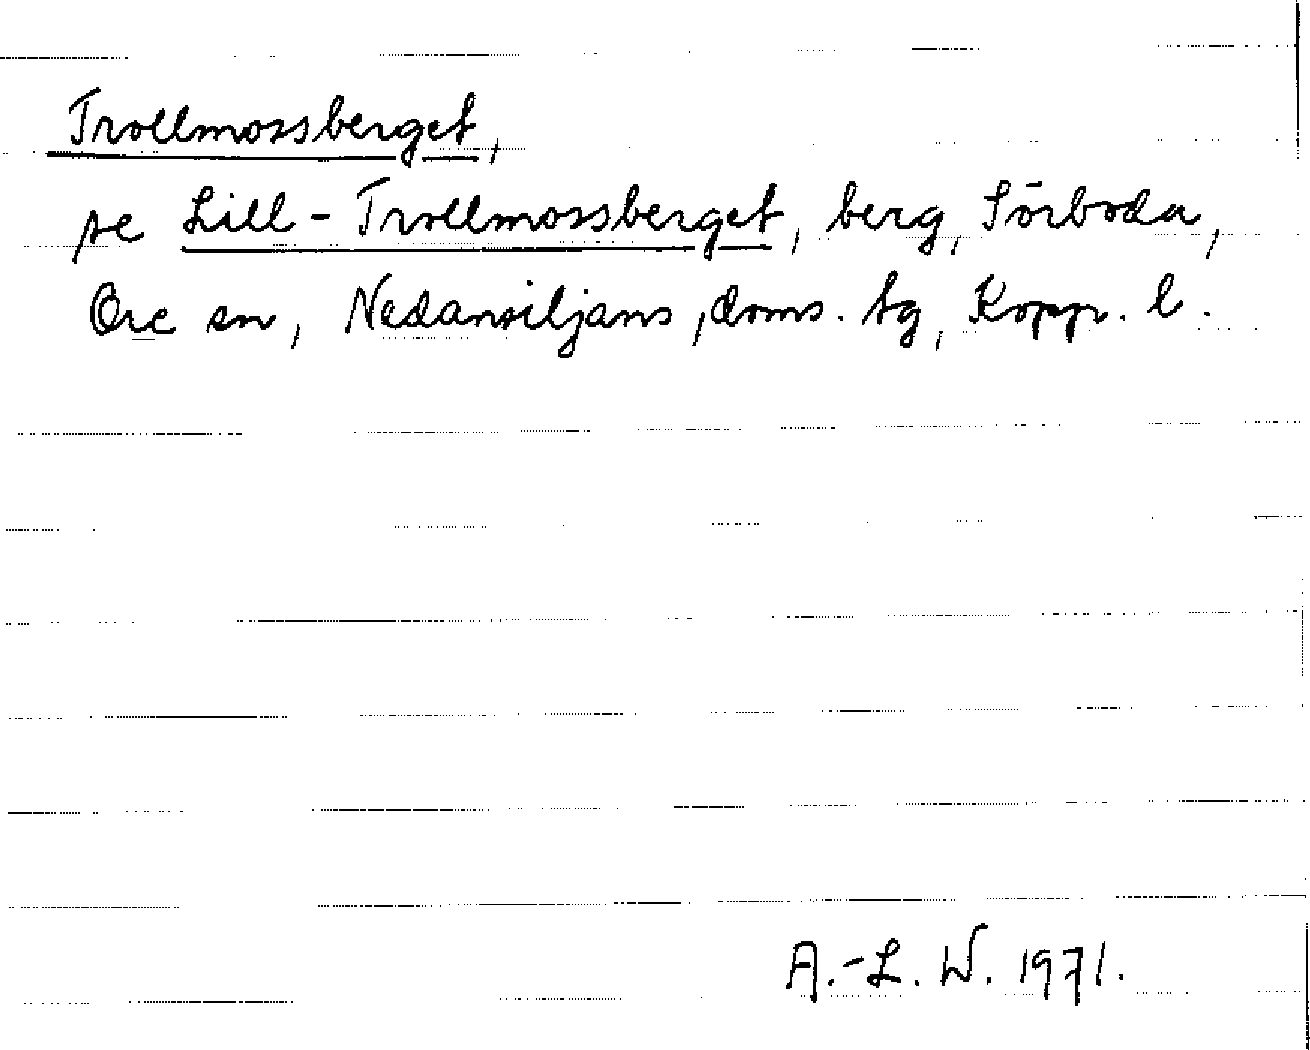 Trollmossberget,
se Lill-Trollmossberget, berg, Sörboda,
Ore sn, Nedansiljans, doms. tg, Kopp. l.
A.-L. W. 1971.